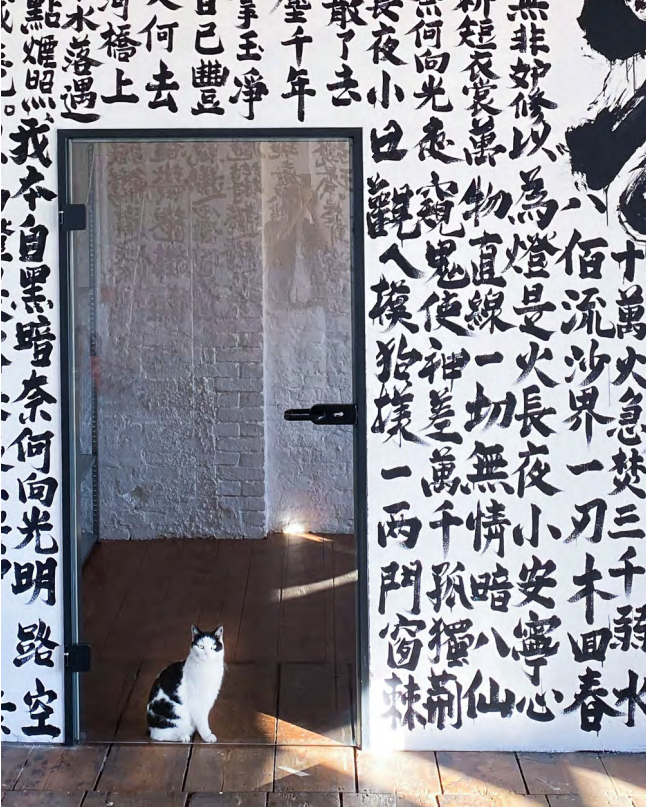 十萬火急焚三千弱水
八佰流沙界一刃木回春
無非妒修以為燈是火長夜小安寧心
短衣裳萬物直線一切無情暗八仙
奈何向光走窺鬼使神差萬千孤獨荊
長夜小丑觀人模狗樣一兩門窗棘
散了去
千年
玉凈
已豐
何去
河橋上
水落遇
點煙照我本自黑暗奈何向光明路空